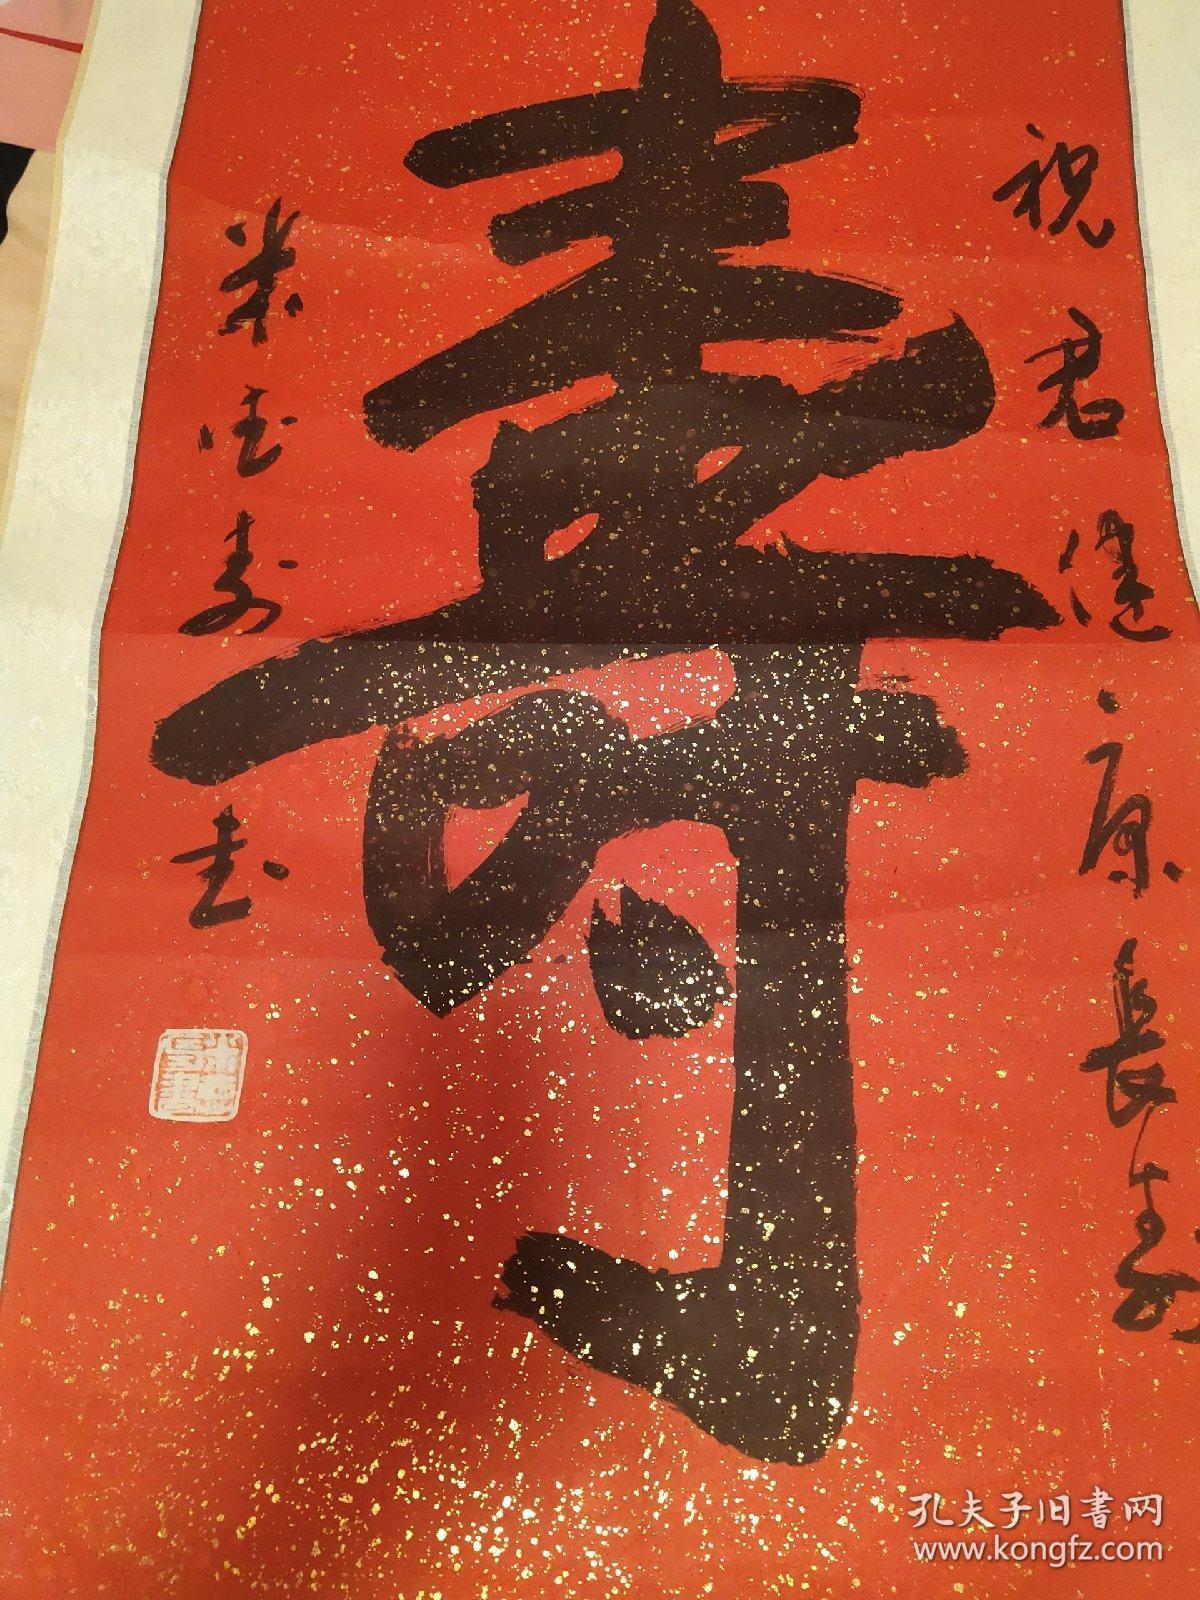 祝君健康長寿
壽
米德寿書
孔夫子旧書网
www.kongfz.com